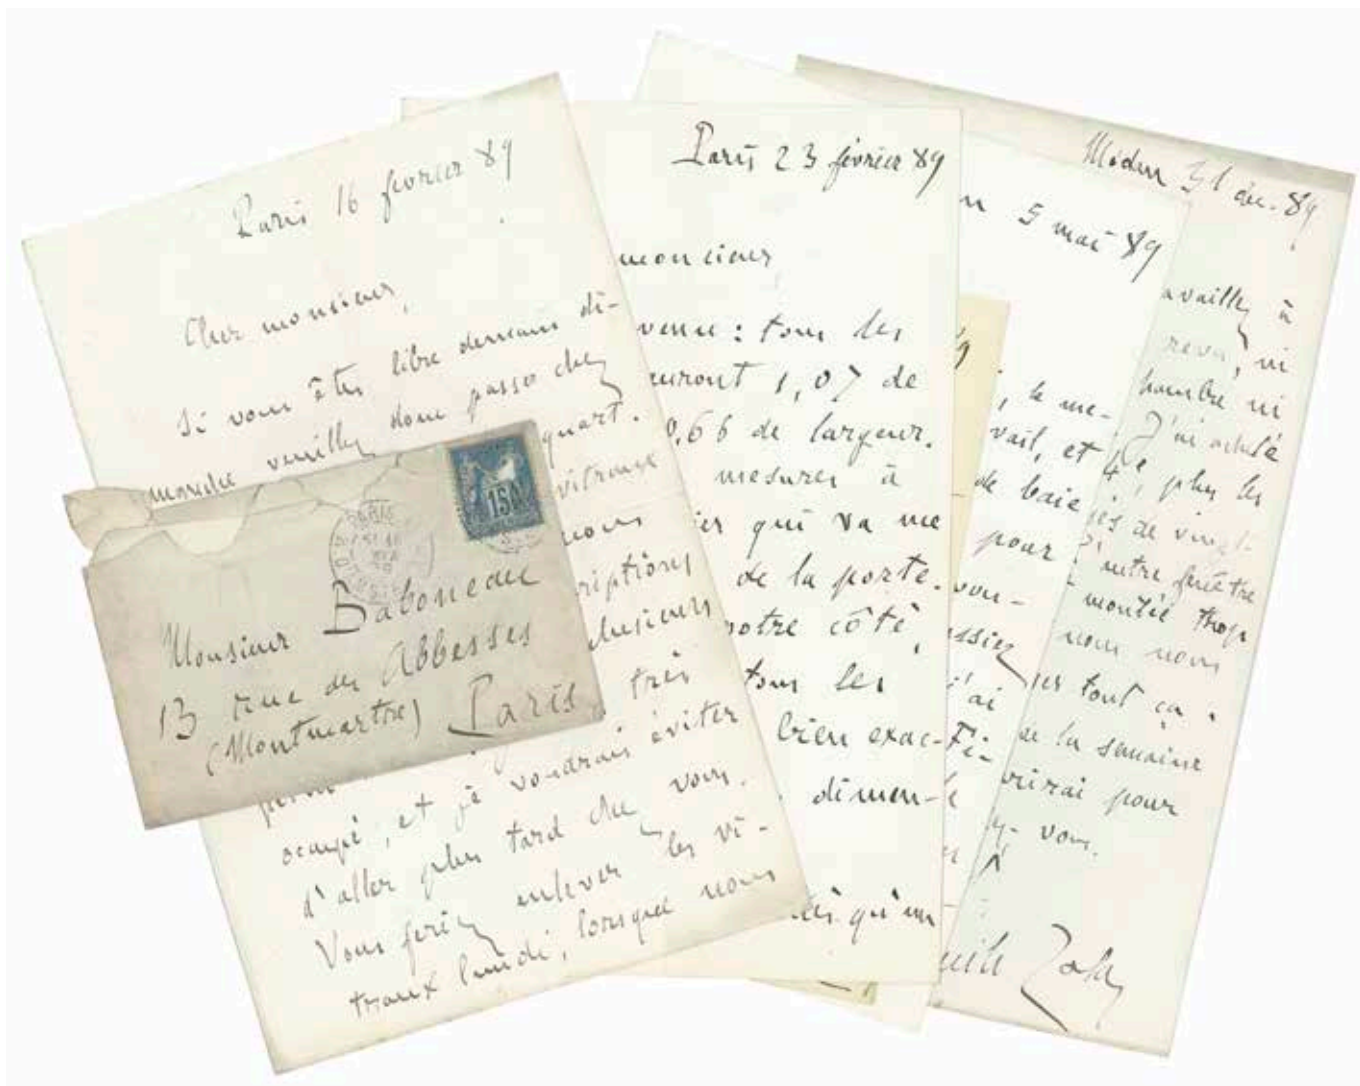 Paris 16 fevrier 89
Cher monsieur,
Si vous êtes libre demain di-
manche veuillez donc passer chez
quart.
vitraux
nous
criptions
plusieurs
très
occupé, et je voudrais éviter
d'aller plus tard chez vous.
Vous feriez enlever les vi-
traux lundi, lorsque nous
15
Monsieur Baboneau
13 rue des Abbesses
(Montmartre) Paris
Paris 23 février 89
monsieur,
venu : tous les
auront 1,07 de
0.66 de largeur.
mesures à
ier qui va me
de la porte.
votre côté,
tous les
bien exac-
dimen-
qu'un
5 mai 89
, le me-
vail, et
de baie
pour
vou-
ssiez
j'ai
Médan 31 déc. 89
availlez à
reva, ni
hombre ni
J'ai acheté
plus les
de vingt
montée trop
nous nous
er tout ça.
de la semaine
vrirai pour
vous.
mile Zola